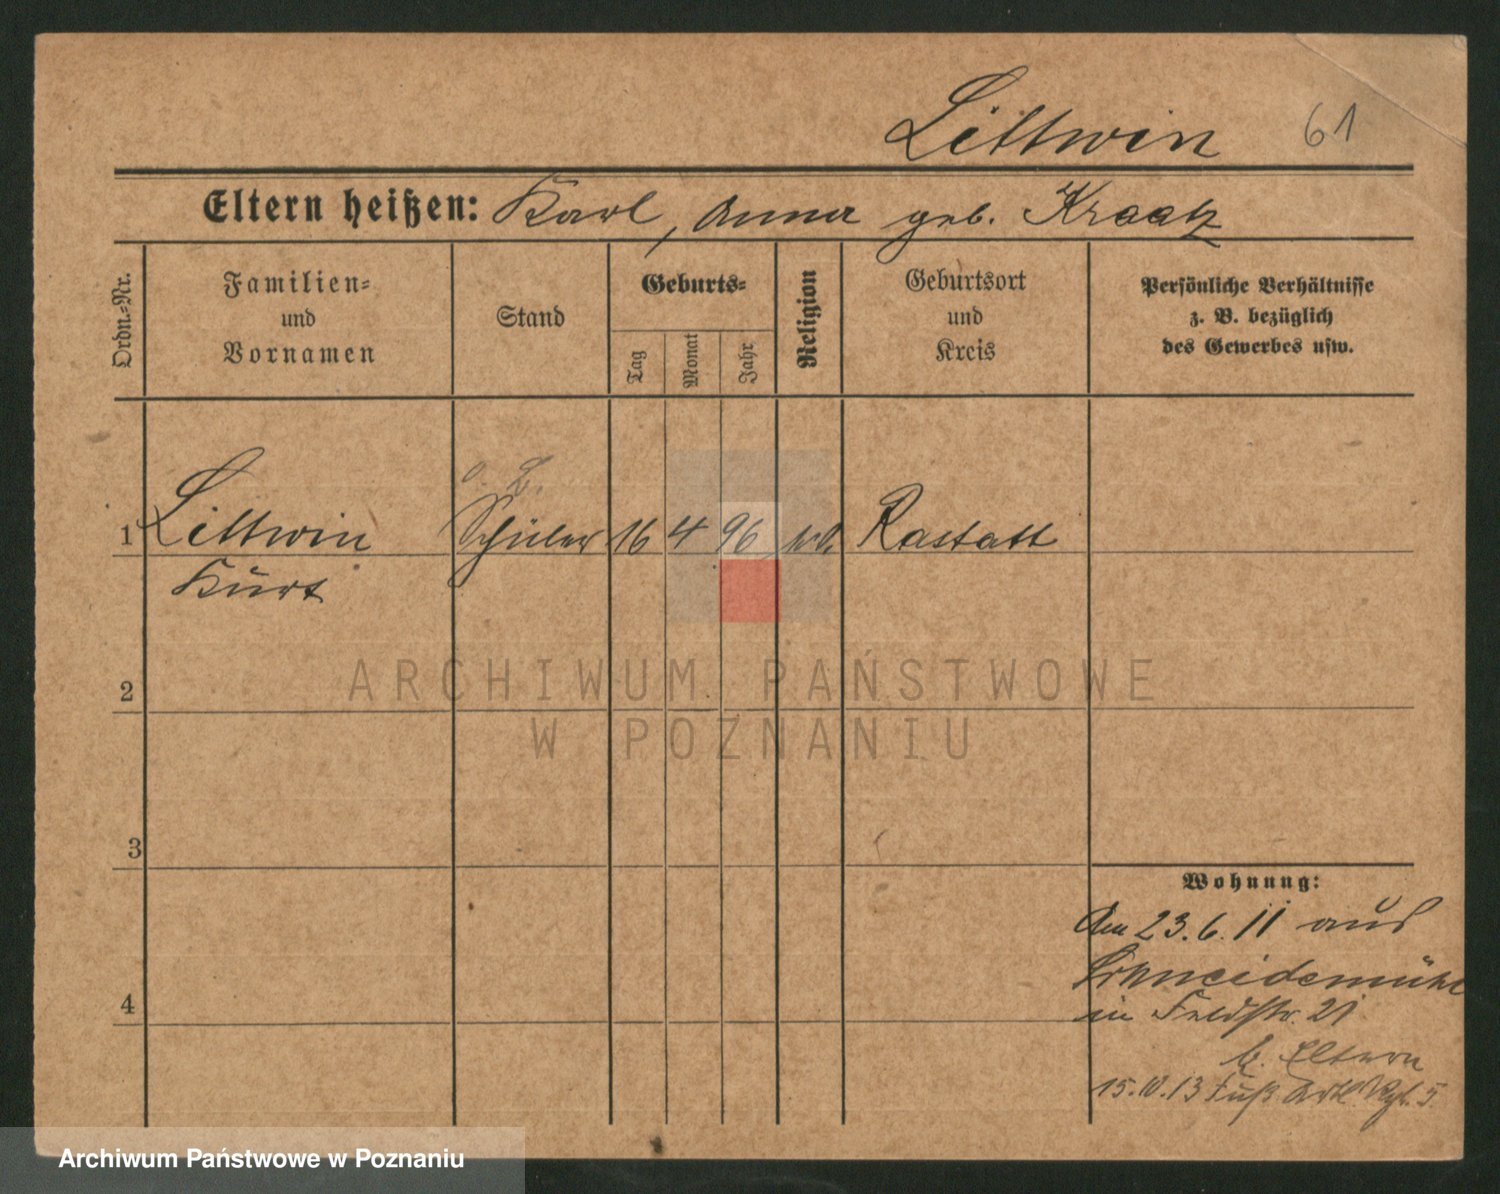 Littwin 61
Eltern heißen: Karl, Anna geb. Kraatz
Ordn.-Nr.
Familien-
und
Vornamen
Stand
Geburts-
Tag
Monat
Jahr
Religion
Geburtsort
und
Kreis
Persönliche Verhältnisse
z. B. bezüglich
des Gewerbes usw.
1 Littwin Schüler 16 4 96 Rastatt
Kurt
2
3
4
Wohnung:
Am 23.6.11 aus
Schneidemühl
in Feldstr. 21
b. Eltern
15.10.13 Fuß Artl. Rgt. 5.
ARCHIWUM PAŃSTWOWE
W POZNANIU
Archiwum Państwowe w Poznaniu